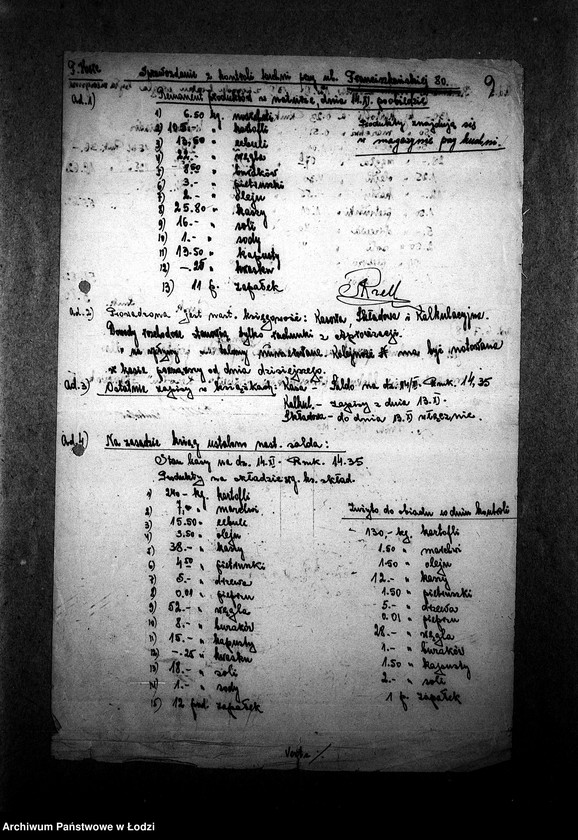 Sprawozdanie z kontroli kuchni przy ul. Franciszkańskiej 80. 9
Ad. 1) Remanent produktów w naturze, dnia 14.XI.
1) 6.50 kg. marchwi
2) kartofli
3) 13,50 " cebuli
4) 22.- " węgla
5) " buraków
6) 3.- " pietruszki
7) 2.- " oleju
8) 25.80 " kaszy
9) 16.- " soli
10) 1.- " sody
11) 13.50 " kapusty
12) -.25 " kwasku
13) 11 p. zapałek
Produkty znajdują się
w magazynie przy kuchni.
Ad. 2) Prowadzona jest nast. księgowość: Kasowa Składowa i Kalkulacyjna.
Dowody rozchodowe stanowią tylko rachunki z Aprowizacji.
" na wpływy - talony numerowane. Kolejność № ma być notowana
w kasie począwszy od dnia dzisiejszego.
Ad. 3) Ostatnie zapisy w książkach: Kasa - Saldo na dz. 14/XI - Rmk. 14,35
Kalkul. - zapisy z dnia 13.XI.
Składowa - do dnia 13.XI włącznie.
Ad. 4) Na zasadzie ksiąg ustalono nast. salda:
Stan kasy na dz. 14.XI - Rmk. 14.35
Produkty na składzie wg. ks. skład.
1) 240 - kg. kartofli
2) 7, " marchwi
3) 15.50 " cebuli
4) 3.50 " oleju
5) 38.- " kaszy
6) 4.50 " pietruszki
7) 5.- " drzewa
8) 0.01 " pieprzu
9) 52.- " węgla
10) 8.- " buraków
11) 15.- " kapusty
12) -.25 " kwasku
13) 18.- " soli
14) 1.- " sody
15) 12 pud. zapałek
Zużyto do obiadu w dniu kontroli
130,- kg. kartofli
1.50 " marchwi
1.50 " oleju
12.- " kaszy
1.50 " pietruszki
5.- " drzewa
0.01 " pieprzu
28.- " węgla
1.- " buraków
1.50 " kapusty
2.- " soli
1 p. zapałek
Verte /.
Archiwum Państwowe w Łodzi